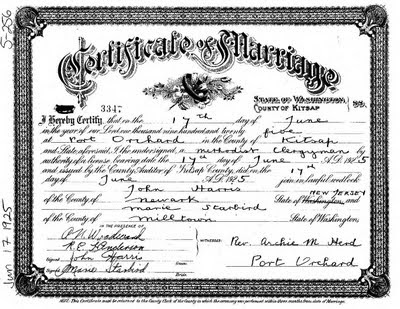 5-256
Certificate of Marriage
3347
STATE OF WASHINGTON,
COUNTY OF KITSAP
ss.
I Hereby Certify, that on the 17th day of June
in the year of our Lord one thousand nine hundred and twenty five
at Port Orchard in the County of Kitsap
and State aforesaid, I the undersigned, a Methodist Clergyman by
authority of a license bearing date the 17th day of June A.D. 1925
and issued by the County Auditor of Kitsap County, did, on the 17th
day of June A.D. 1925 join in lawful wedlock
John Harris
of the County of Newark State of Washington, and NEW JERSEY
Marie Starbird
of the County of Milltown State of Washington,
IN THE PRESENCE OF
WITNESSES
R.E. Henderson
Signed John Harris
Groom
Rev. Archie M. Herd
Signed Marie Starbird
Bride.
Port Orchard
NOTE: This Certificate must be returned to the County Clerk of the County in which the ceremony was performed within three months from date of Marriage.
Jun 17 1925